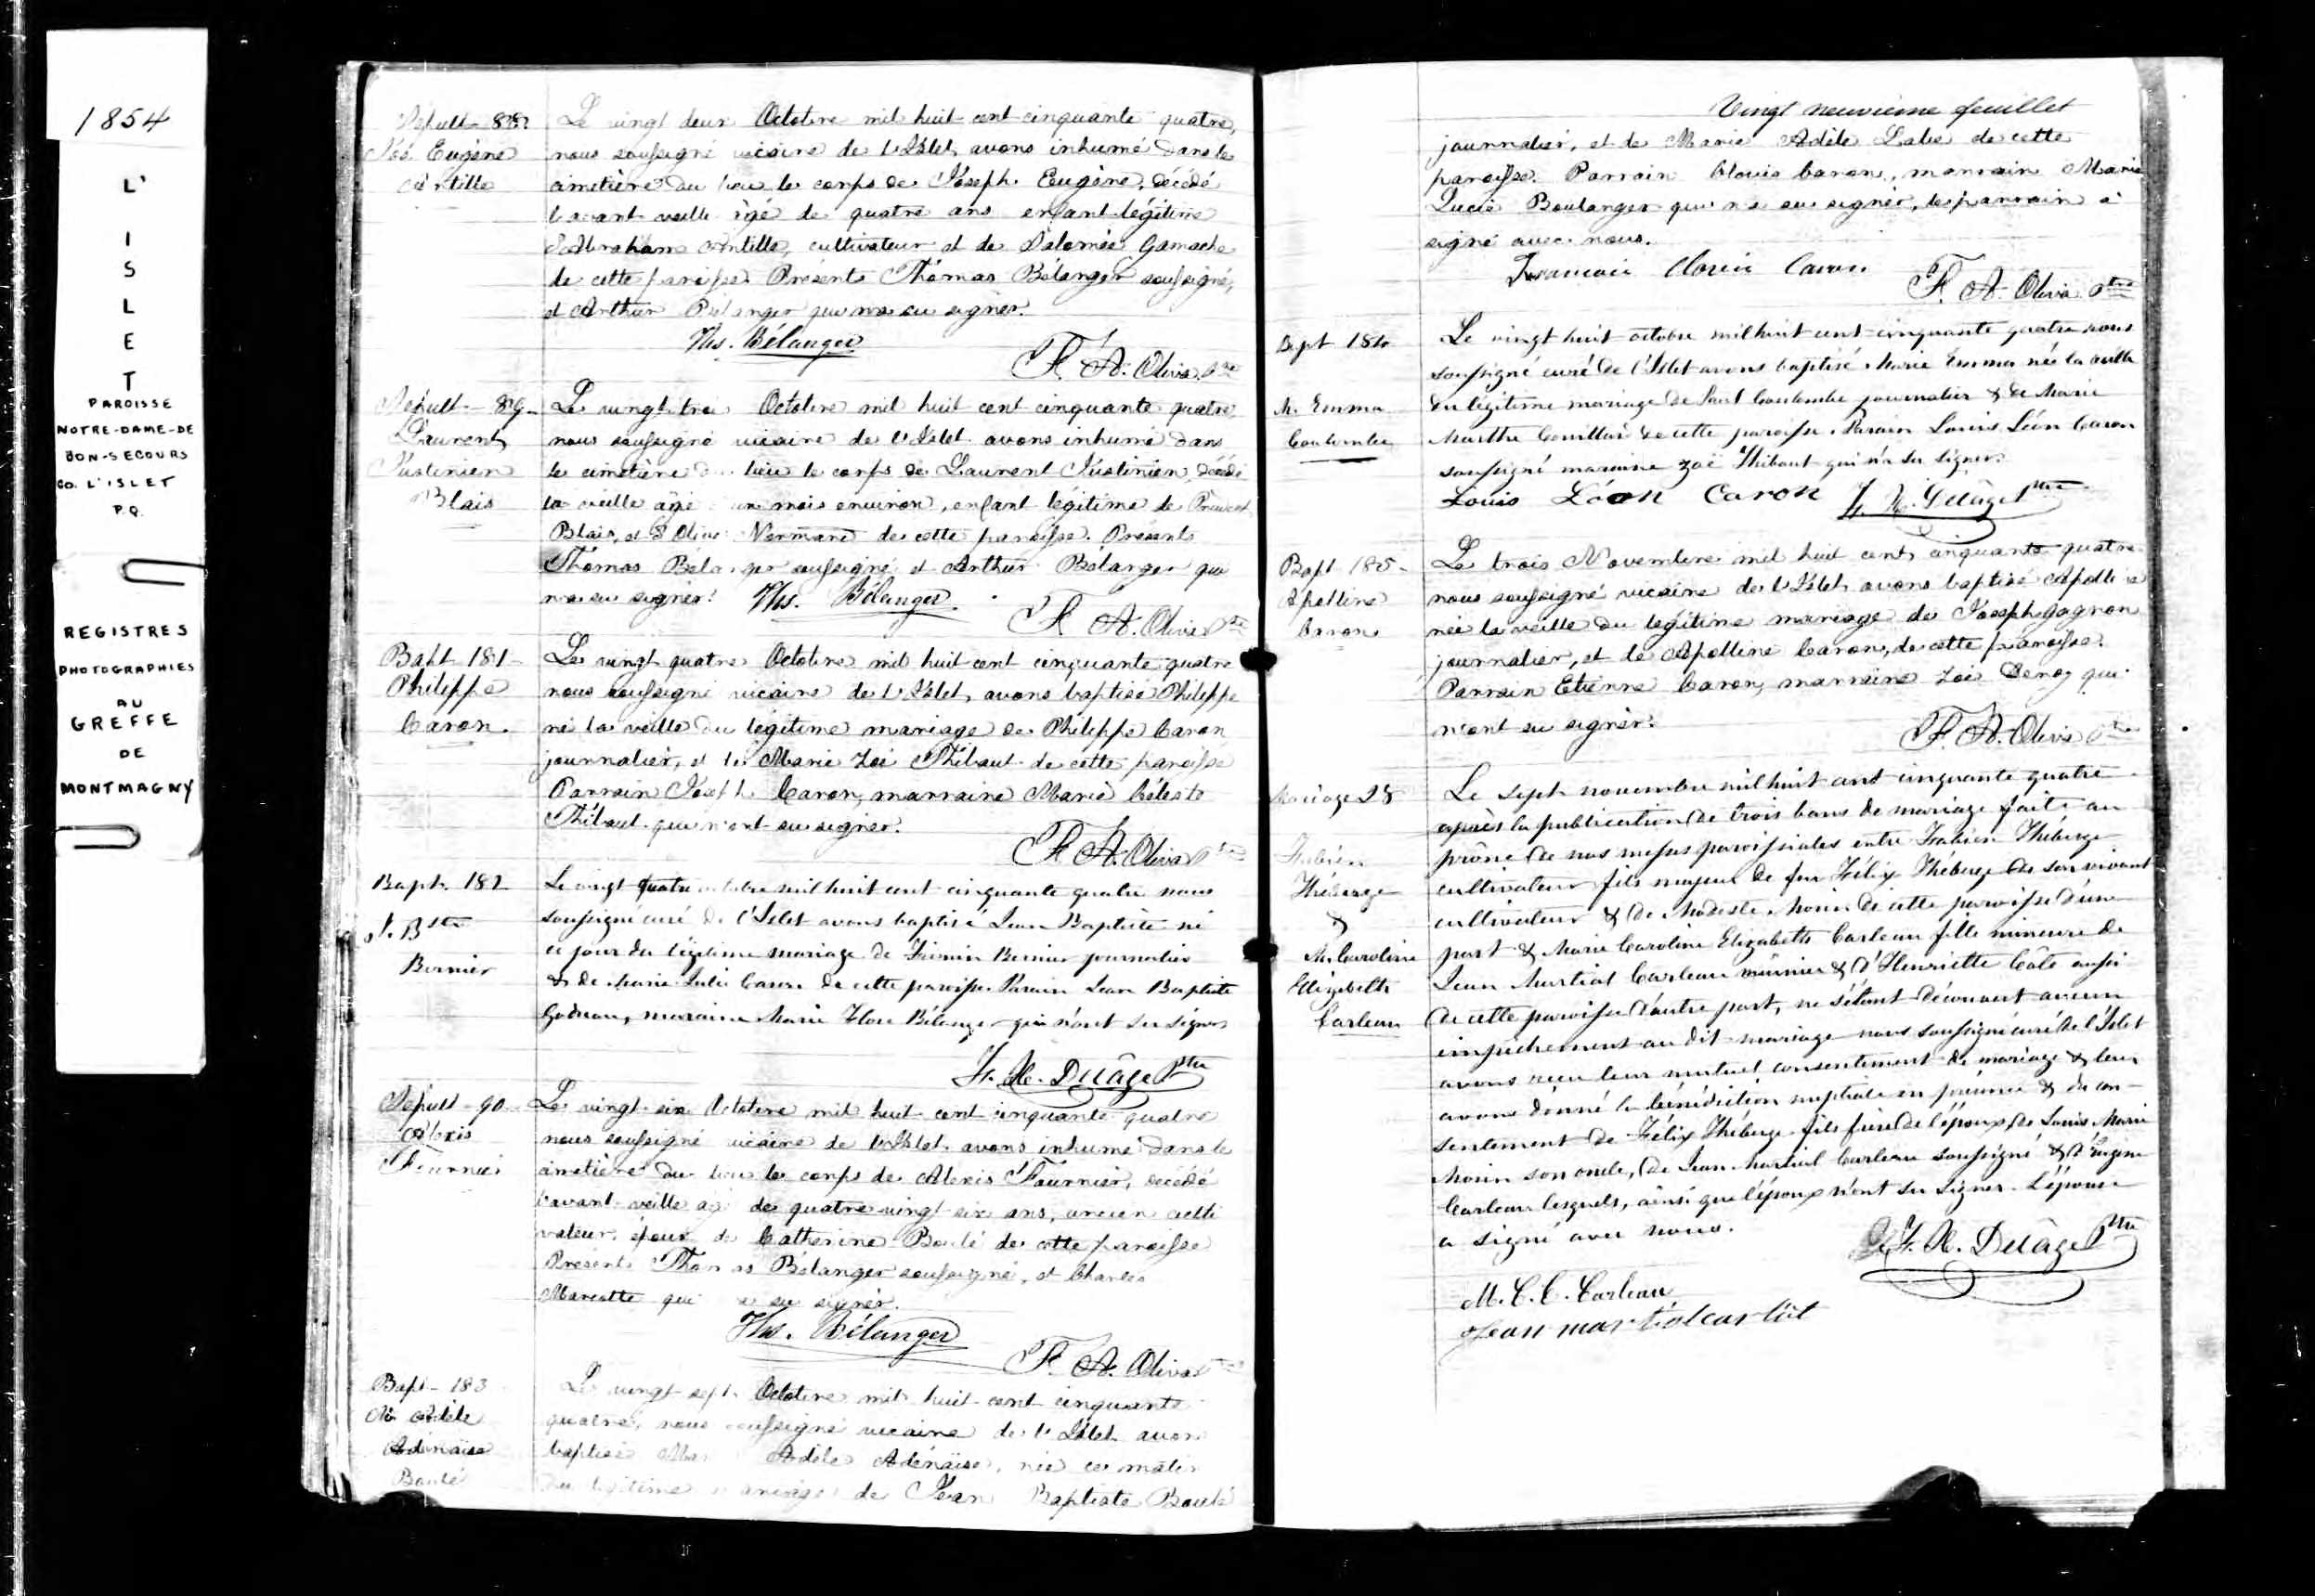 1854
L'
I
S
L
E
T
PAROISSE
NOTRE-DAME-DE
BON-SECOURS
CO. L'ISLET
P.Q.
REGISTRES
PHOTOGRAPHIES
AU
GREFFE
DE
MONTMAGNY
Sépult - 88
Jos. Eugène
Le vingt deux Octobre mil huit cent cinquante quatre,
nous soussigné vicaire de l'Islet, avons inhumé dans le
cimetière du lieu le corps de Joseph Eugène, décédé
l'avant veille âgé de quatre ans enfant légitime
d'Abraham cultivateur et de Salomée Gamache
de cette paroisse. Présents Thomas Bélanger soussigné,
et Arthur Bélanger qui n'a su signer.
Ths. Bélanger
F. A. Oliva Ptre
Sépult - 89 -
Laurent
Justinien
Blais
Le vingt trois Octobre mil huit cent cinquante quatre
nous soussigné vicaire de l'Islet avons inhumé dans
le cimetière du lieu le corps de Laurent Justinien, décédé
la veille âgé un mois environ, enfant légitime de
Blais, et Normand de cette paroisse. Présents
Thomas Bélanger soussigné et Arthur Bélanger qui
n'a su signer. Ths. Bélanger
F. A. Oliva Ptre
Bapt - 181 -
Philippe
Caron.
Le vingt quatre Octobre mil huit cent cinquante quatre
nous soussigné vicaire de l'Islet, avons baptisé Philippe
né la veille du légitime mariage de Philippe Caron
journalier, et de Marie Zoé Thibaut de cette paroisse
Parrain Joseph Caron, marraine Marie Céleste
Thibaut qui n'ont su signer.
F. A. Oliva Ptre
Bapt. 182
J. Bste
Bernier
Le vingt quatre octobre mil huit cent cinquante quatre nous
soussigné curé de l'Islet avons baptisé Jean Baptiste né
ce jour du légitime mariage de Firmin Bernier journalier
& de Marie Julie Caron de cette paroisse. Parain Jean Baptiste
Godreau, maraine Marie Flore Bélanger qui n'ont su signer
F. X. Delâge Ptre
Sépult - 90 -
Alexis
Fournier
Le vingt six Octobre mil huit cent cinquante quatre
nous soussigné vicaire de l'Islet, avons inhumé dans le
cimetière du lieu le corps de Alexis Fournier, décédé
l'avant veille âgé de quatre vingt six ans, ancien culti
vateur, époux de Catherine Boulé de cette paroisse
Présents Thomas Bélanger soussigné, et Charles
Marcotte qui n'a su signer.
Ths. Bélanger
F. A. Oliva Ptre
Bapt - 183
Me Adèle
Adénaïse
Boulé
Le vingt sept Octobre mil huit cent cinquante
quatre, nous soussigné vicaire de l'Islet avons
baptisé Marie Adèle Adénaïse, née ce matin
du légitime mariage de Jean Baptiste Boulé
Vingt neuvième feuillet
journalier, et de Marie Adèle de cette
paroisse. Parrain Clovis Caron, marraine Marie
Lucie Boulanger qui n'a su signer, le parrain a
signé avec nous.
Clovis Caron
F. A. Oliva Ptre
Bapt 184
M. Emma
Coulombe
Le vingt huit octobre mil huit cent cinquante quatre nous
soussigné curé de l'Islet avons baptisé Marie Emma née la veille
du légitime mariage de Paul Coulombe journalier & de Marie
Marthe Couillard de cette paroisse. Parain Louis Léon Caron
soussigné maraine Zoé Thibaut qui n'a su signer.
Louis Léon Caron F. X. Delâge Ptre
Bapt 185 -
Apolline
Caron
Le trois Novembre mil huit cent cinquante quatre
nous soussigné vicaire de l'Islet avons baptisé Apolline
née la veille du légitime mariage de Joseph Gagnon
journalier, et de Apolline Caron, de cette paroisse.
Parrain Etienne Caron, marraine Zoé qui
n'ont su signer.
F. A. Oliva Ptre
Mariage 28
Fabien
Théberge
&
M. Caroline
Elizabeth
Carleau
Le sept novembre mil huit cent cinquante quatre
après la publication de trois bans de mariage faite au
prône de nos messes paroissiales entre Fabien Théberge
cultivateur fils majeur de feu Félix Théberge de son vivant
cultivateur & de Modeste Morin de cette paroisse d'une
part & Marie Caroline Elizabeth Carleau fille mineure de
Jean Martial Carleau meunier & d'Henriette Côté aussi
de cette paroisse d'autre part, ne s'étant découvert aucun
empêchement au dit mariage nous soussigné curé de l'Islet
avons reçu leur mutuel consentement de mariage & leur
avons donné la bénédiction nuptiale en présence & du con-
sentement de Félix Théberge fils frère de l'époux, de Louis Marie
Morin son oncle, de Jean Martial Carleau soussigné & d'Eugène
Carleau lesquels, ainsi que l'époux n'ont su signer. L'épouse
a signé avec nous.
F. X. Delâge Ptre
M. C. E. Carleau
Jean martial carlot